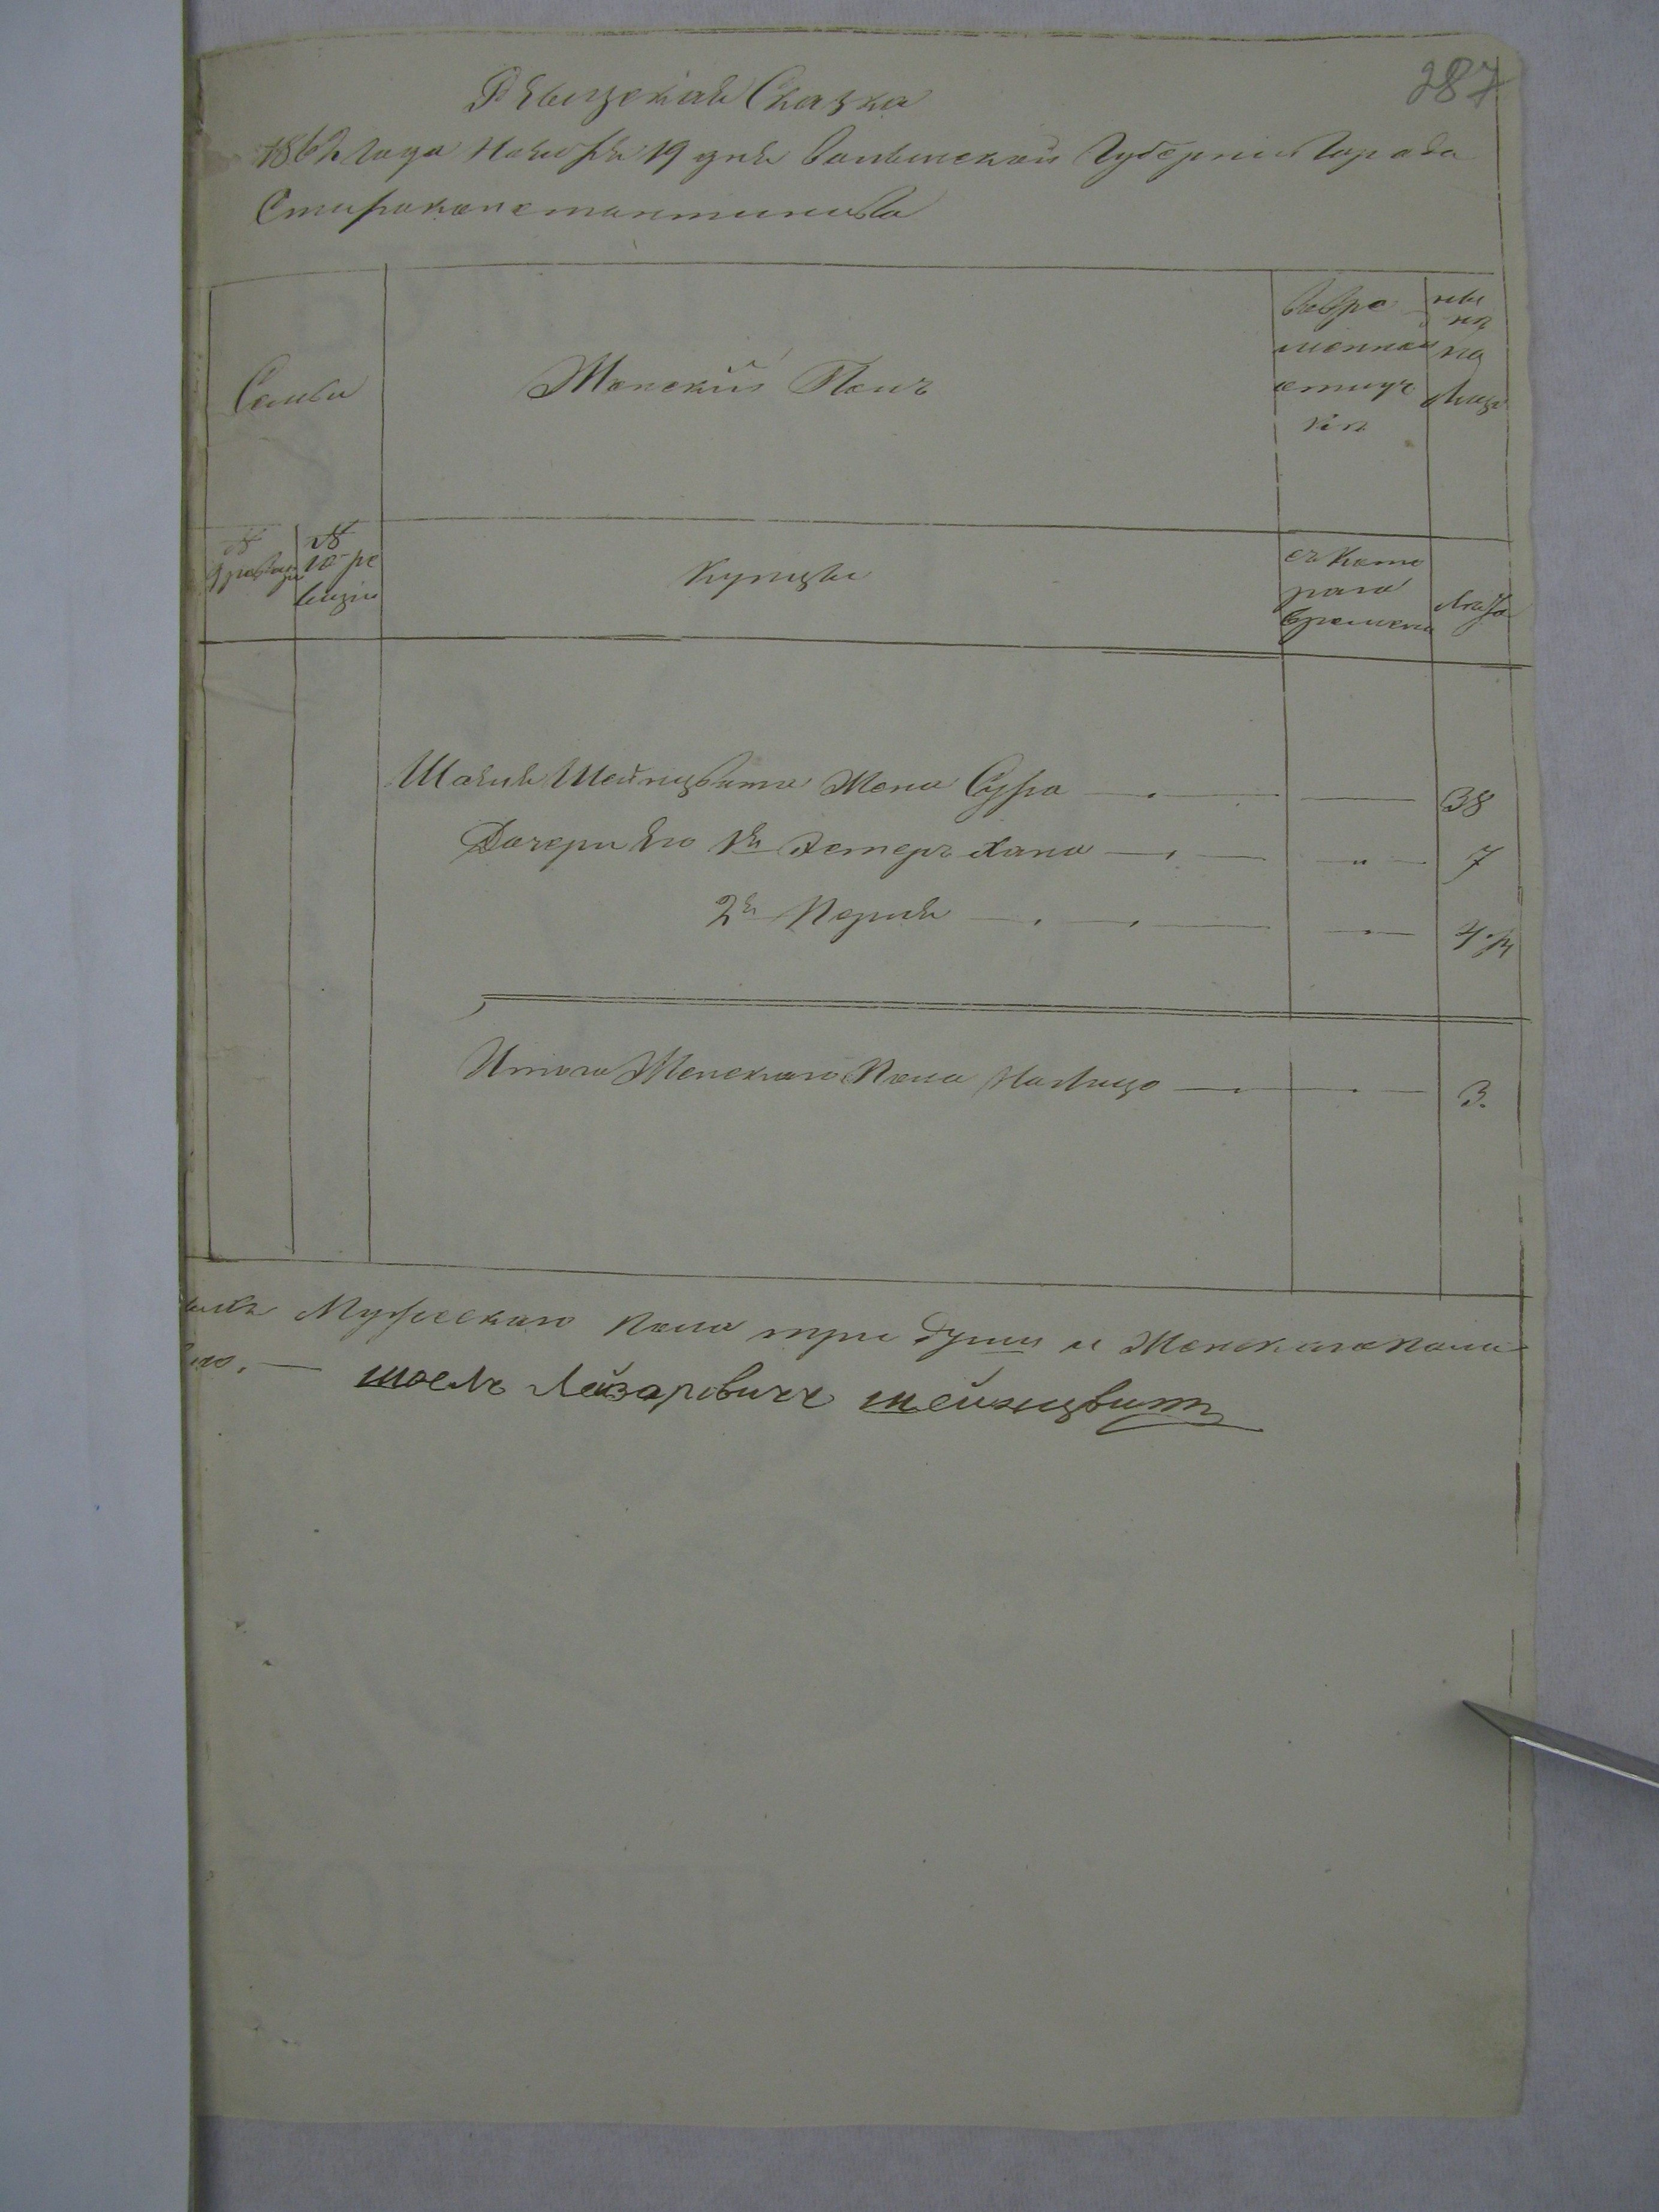 287
Ревизская Сказка
1862 года Ноября 19 дня Волынской Губернии Города
Староконстантинова
Семьи
Женский Полъ
Во вре
менной
отлуч
ки
ны
не
на
лицо
№
№
10 ре
визіи
Купцы
съ кото
раго
времени
Лета
Шейнцвита Жена Сура 38
Дочери Его 1я Эстеръ Хана 7
2я Перля
Итого Женскаго Пола На лицо 3.
Мужескаго пола три души и Женскаго пола
шоелъ Лейзаровичъ шейнцвитъ